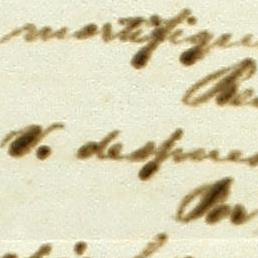 mortifique
Be
V. despues
Por